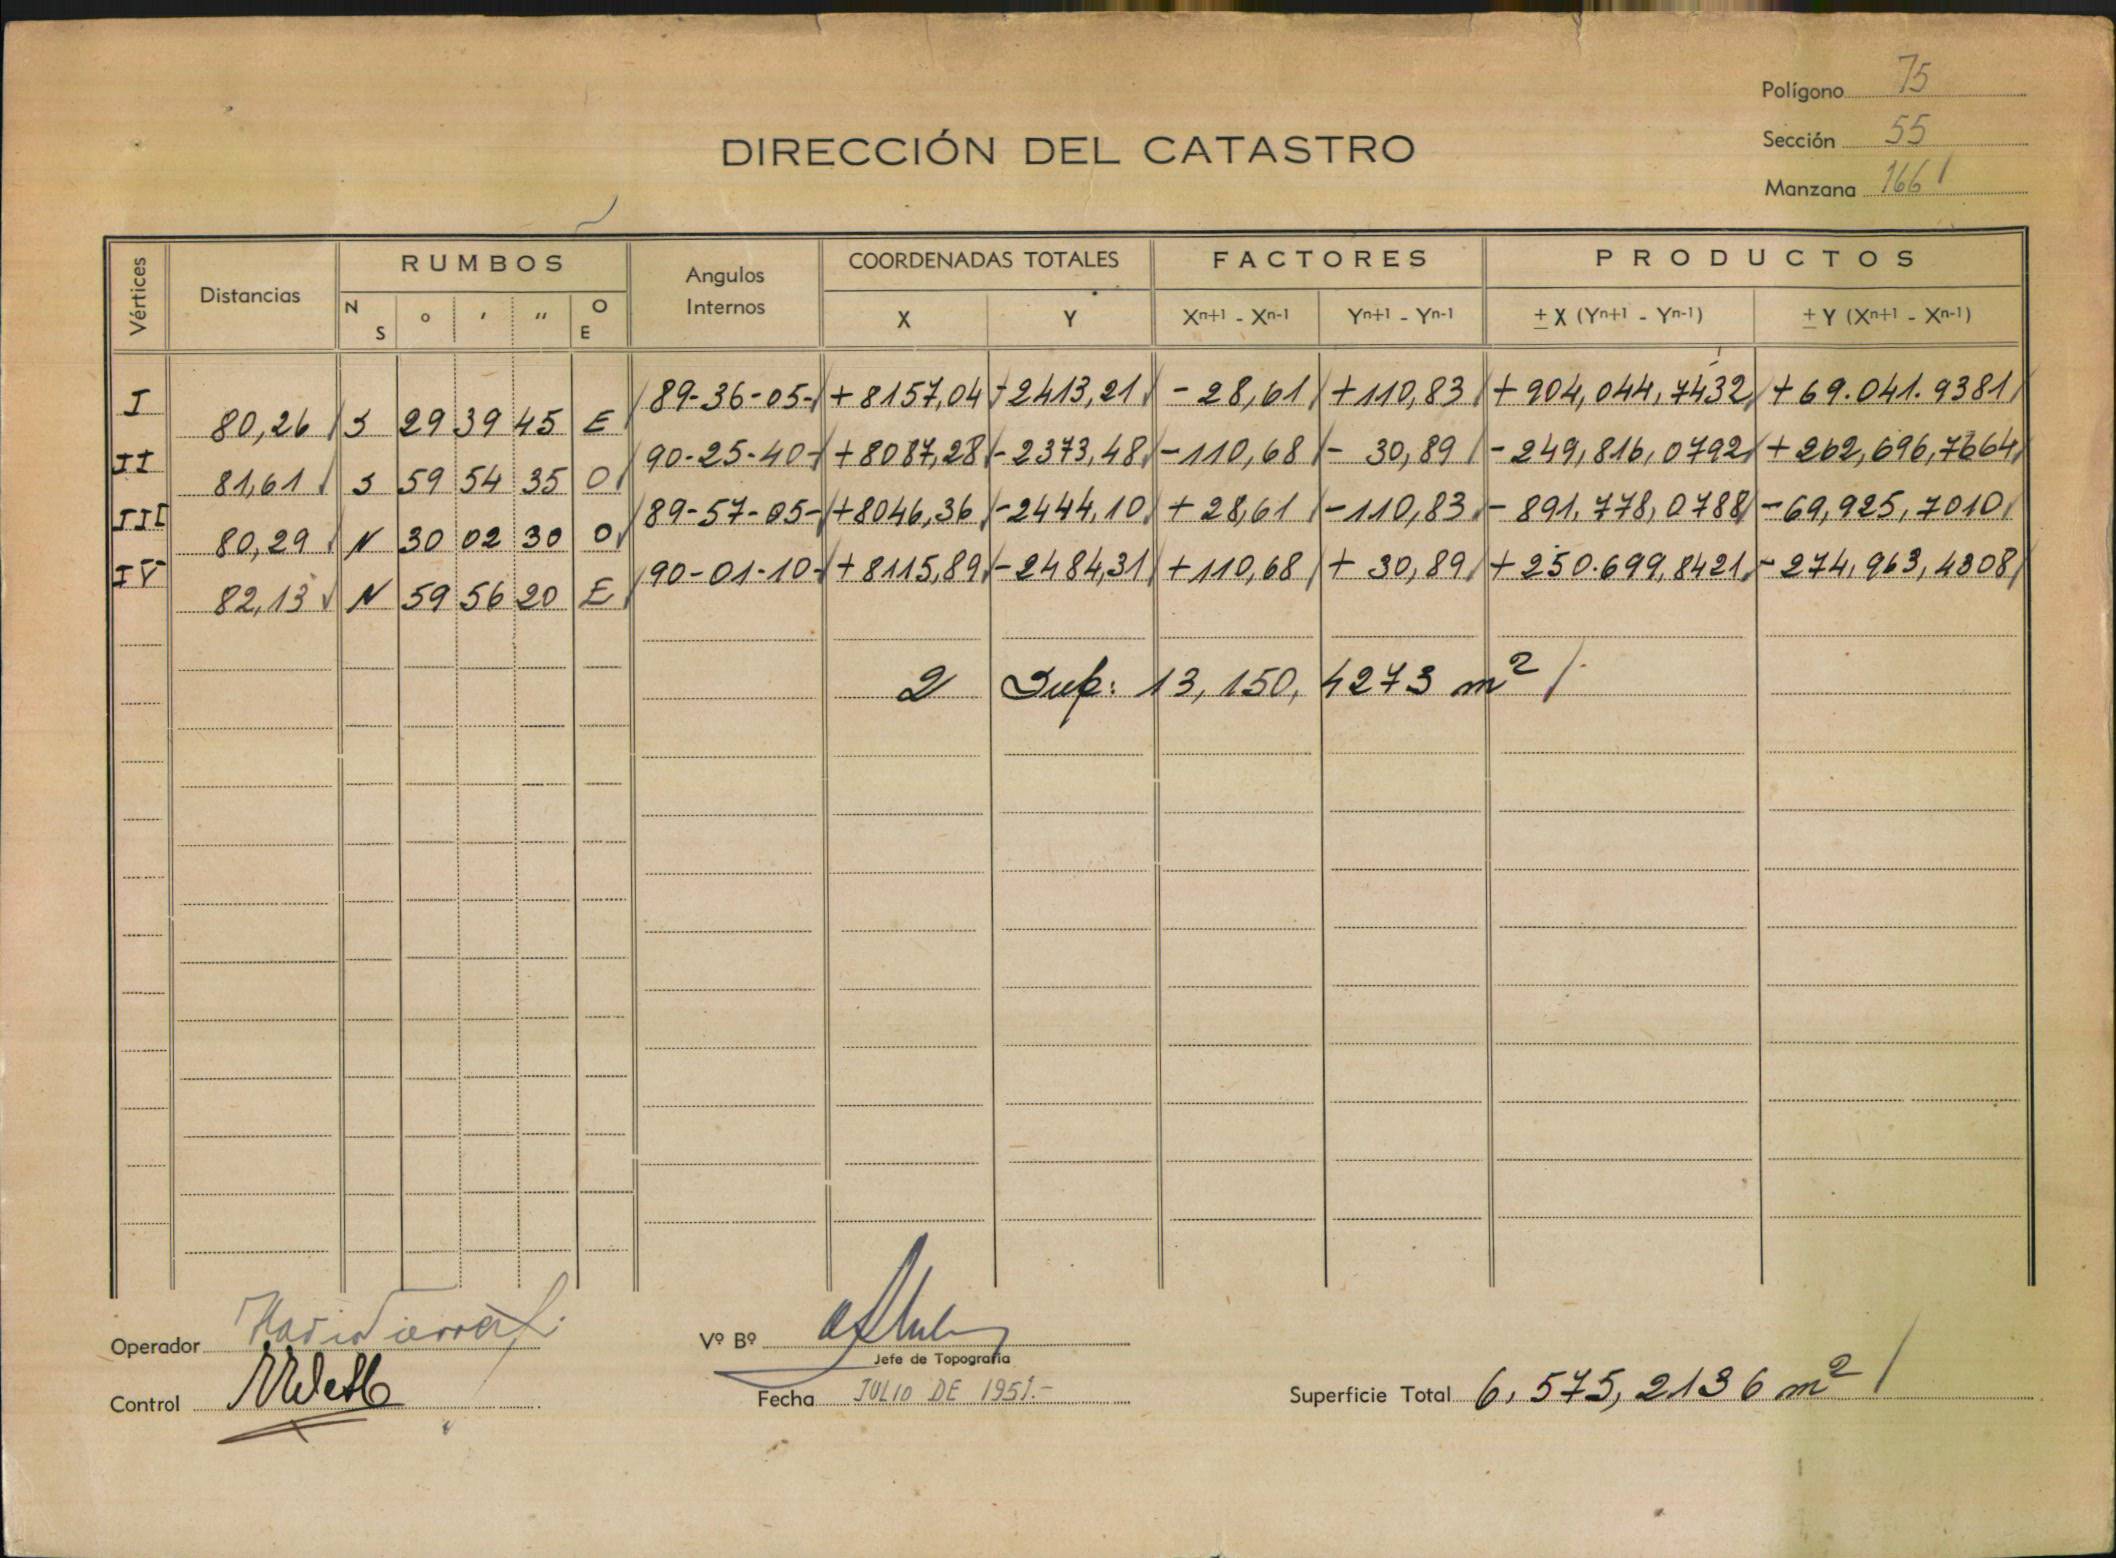 Polígono 75
DIRECCIÓN DEL CATASTRO
Sección 55
Manzana 166
Vértices Distancias RUMBOS Angulos Internos COORDENADAS TOTALES FACTORES PRODUCTOS
N S ° ′ ″ O E X Y Xn+1 - Xn-1 Yn+1 - Yn-1 ± X (Yn+1 - Yn-1) ± Y (Xn+1 - Xn-1)
I 89-36-05- +8157,04 -2413,21 -28,61 +110,83 +904,044,7432 +69.041.9381
80,26 S 29 39 45 E
II 90-25-40- +8087,28 -2373,48 -110,68 - 30,89 -249,816,0792 +262,696,7664
81,61 S 59 54 35 O
III 89-57-05- +8046,36 -2444,10 +28,61 -110,83 - 891.778,0788 -69,925,7010
80,29 N 30 02 30 O
IV 90-01-10- +8115,89 -2484,31 +110,68 + 30,89 +250.699,8421 - 274,963,4308
82,13 N 59 56 20 E
2 Sup: 13,150,4273 m²
Operador
Vº Bº
Jefe de Topografía
Control
Fecha JULIO DE 1951.-
Superficie Total 6.575,2136 m²